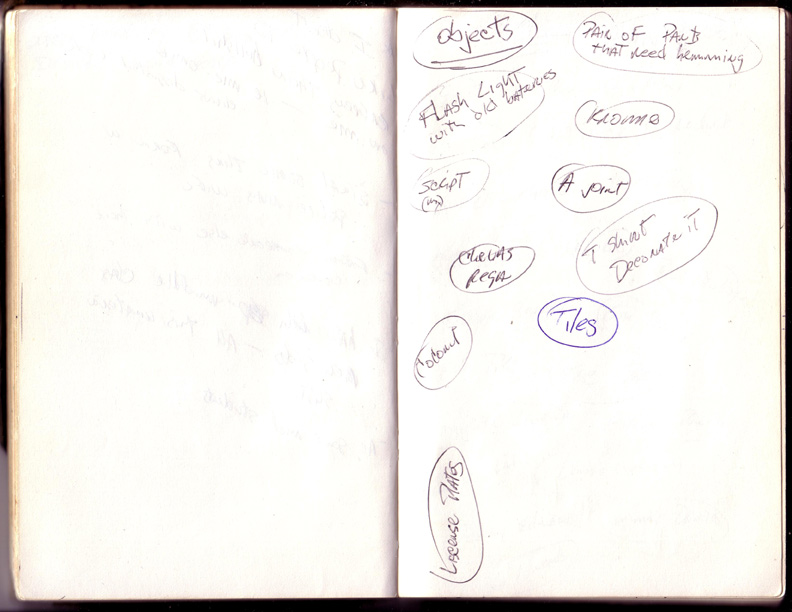 objects
PAIR OF PANTS
that need hemming
FLASH LIGHT
with old batteries
SCRIPT
A joint
T Shirt
Decorate iT
CHIVAS
REGA
Tiles
Coconut
License Plates